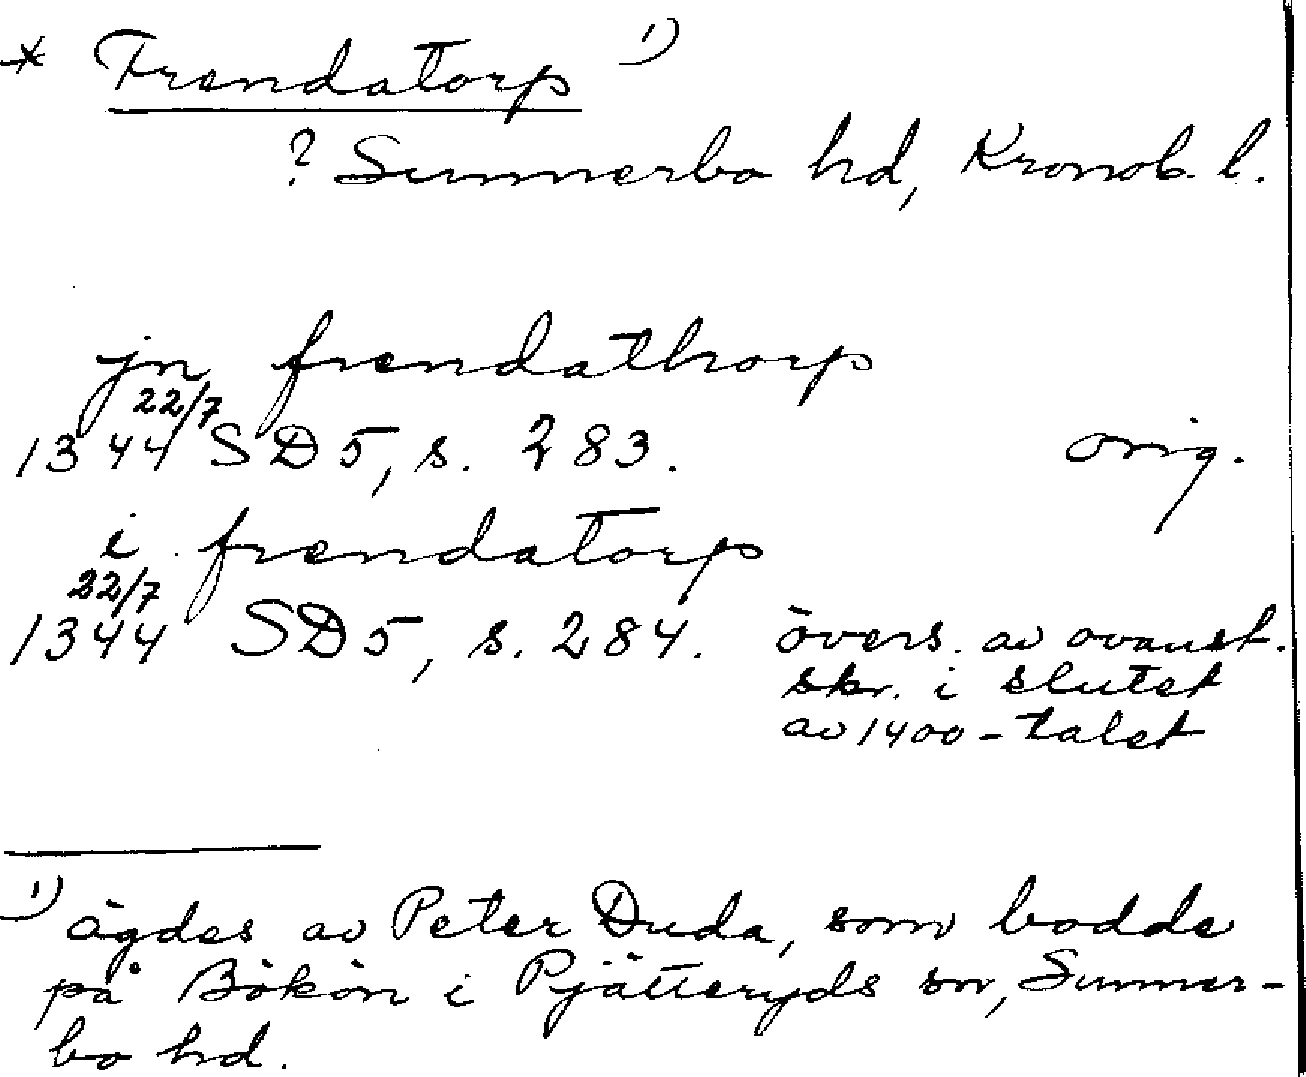 * Frendatorp 1)
? Sunnerbo hd, Kronob. l.
jn frendathorp
22/7
1344 SD 5, s. 283. orig.
i frendatorp
22/7
1344 SD 5, s. 284. övers. av ovanst.
skr. i slutet
av 1400-talet
1) ägdes av Peter Duda, som bodde
på Bökön i Pjätteryds sn, Sunner-
bo hd.